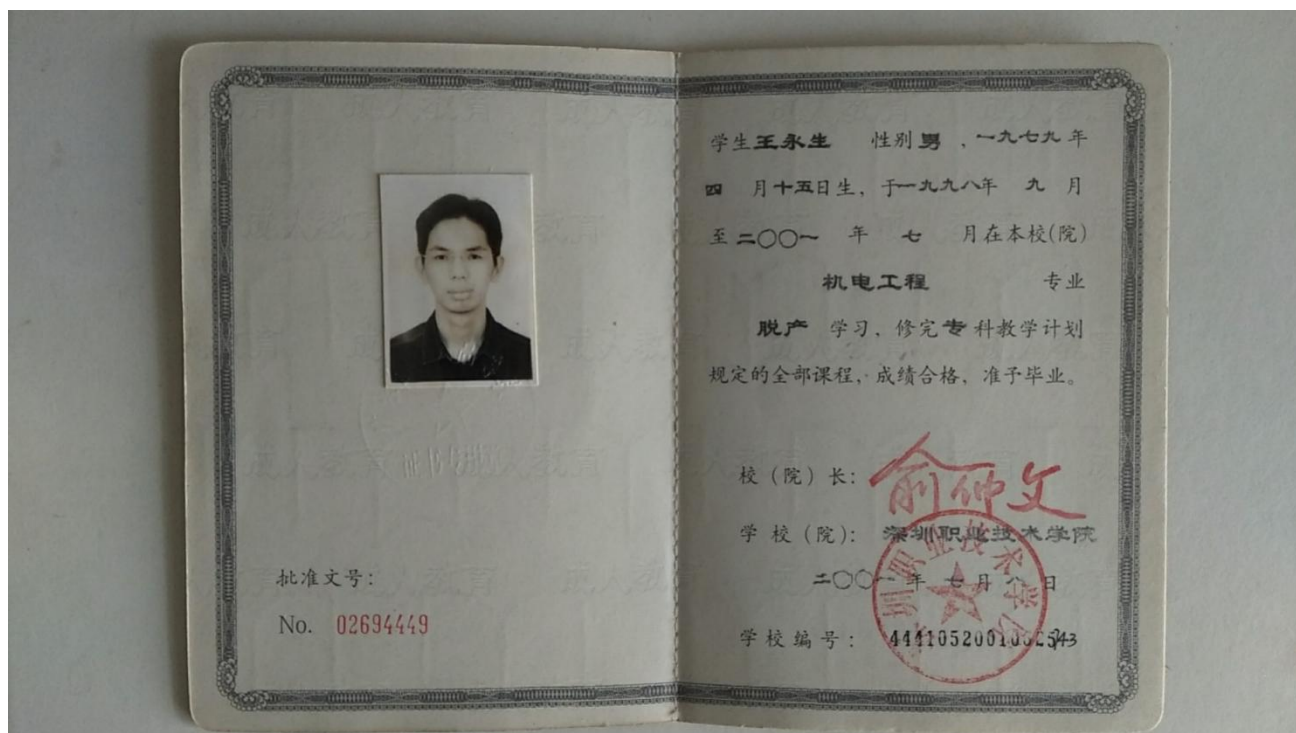 批准文号：
No. 02694449
学生王永生 性别男，一九七九年
四 月十五日生，于一九九八年 九 月
至二〇〇一 年 七 月在本校(院)
机电工程 专业
脱产 学习，修完专科教学计划
规定的全部课程，成绩合格，准予毕业。
校（院）长：俞仲文
学校（院）：深圳职业技术学院
二〇〇一年七月八日
学校编号：
圳职业技术学院
成人教育